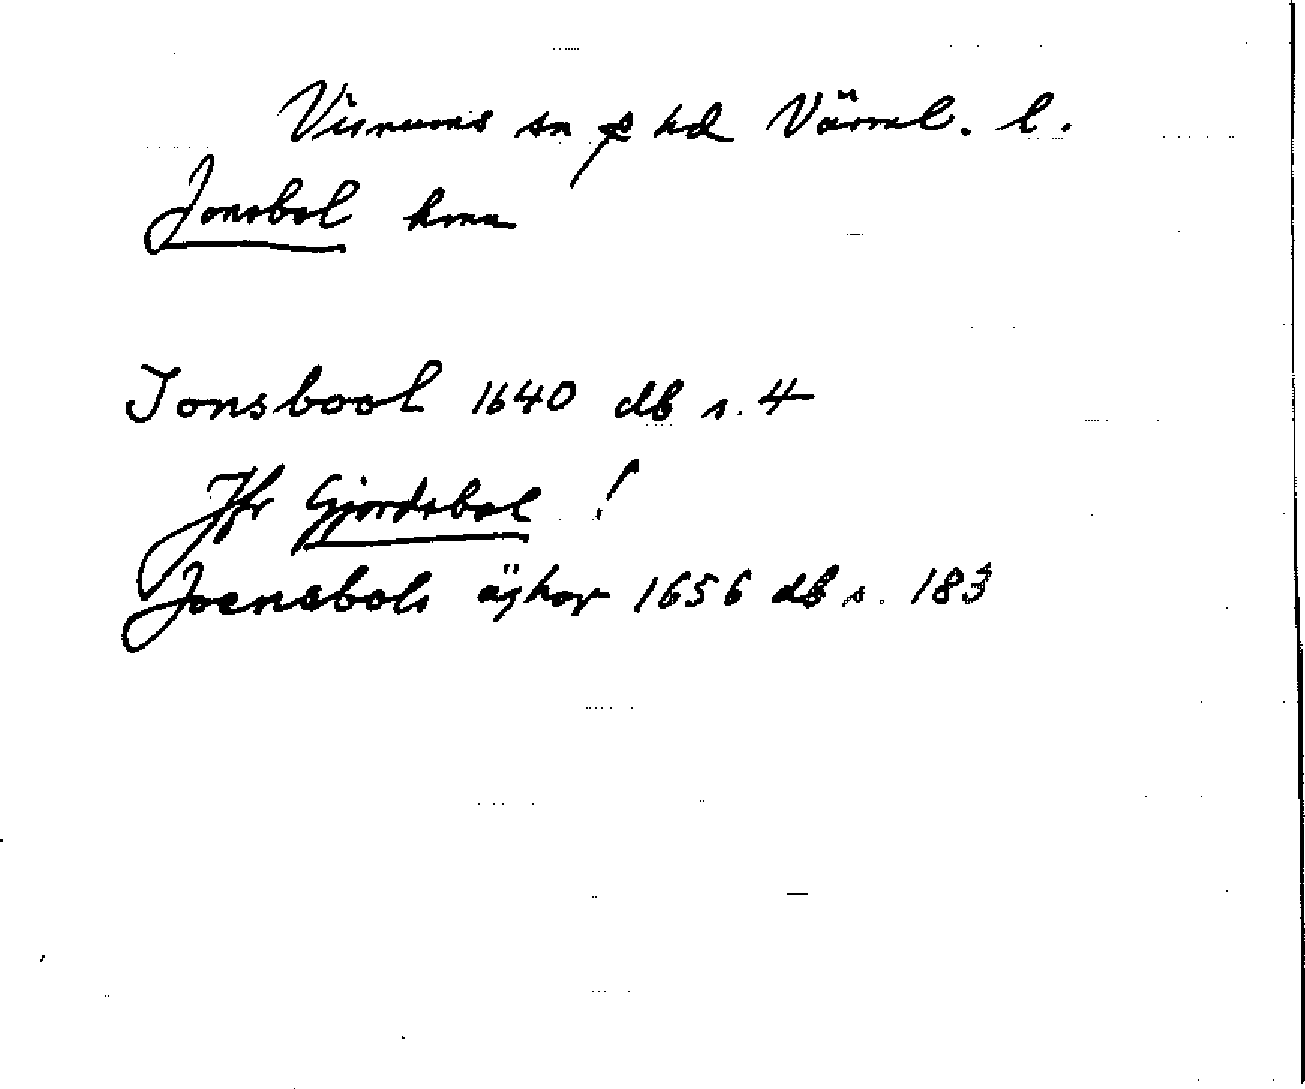 Visnums sn på hd Värml. l.
Jonsbol hmn
Jonsbool 1640 db s. 4
Jfr Gjordsbol !
Joensbols ägher 1656 db s. 183